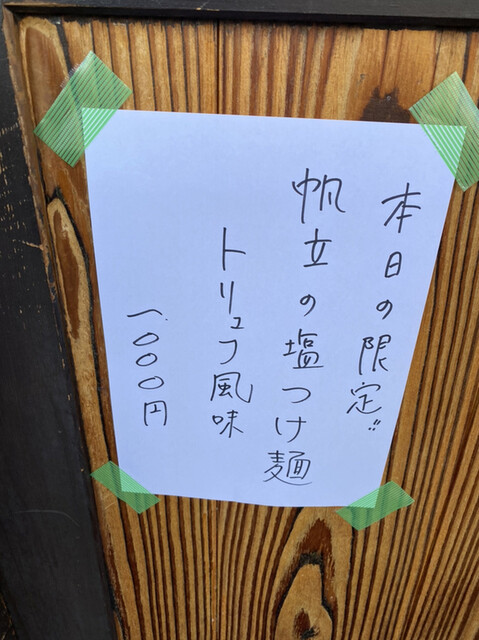 本日の限定!!
帆立の塩つけ麺
トリュフ風味
一.〇〇〇円